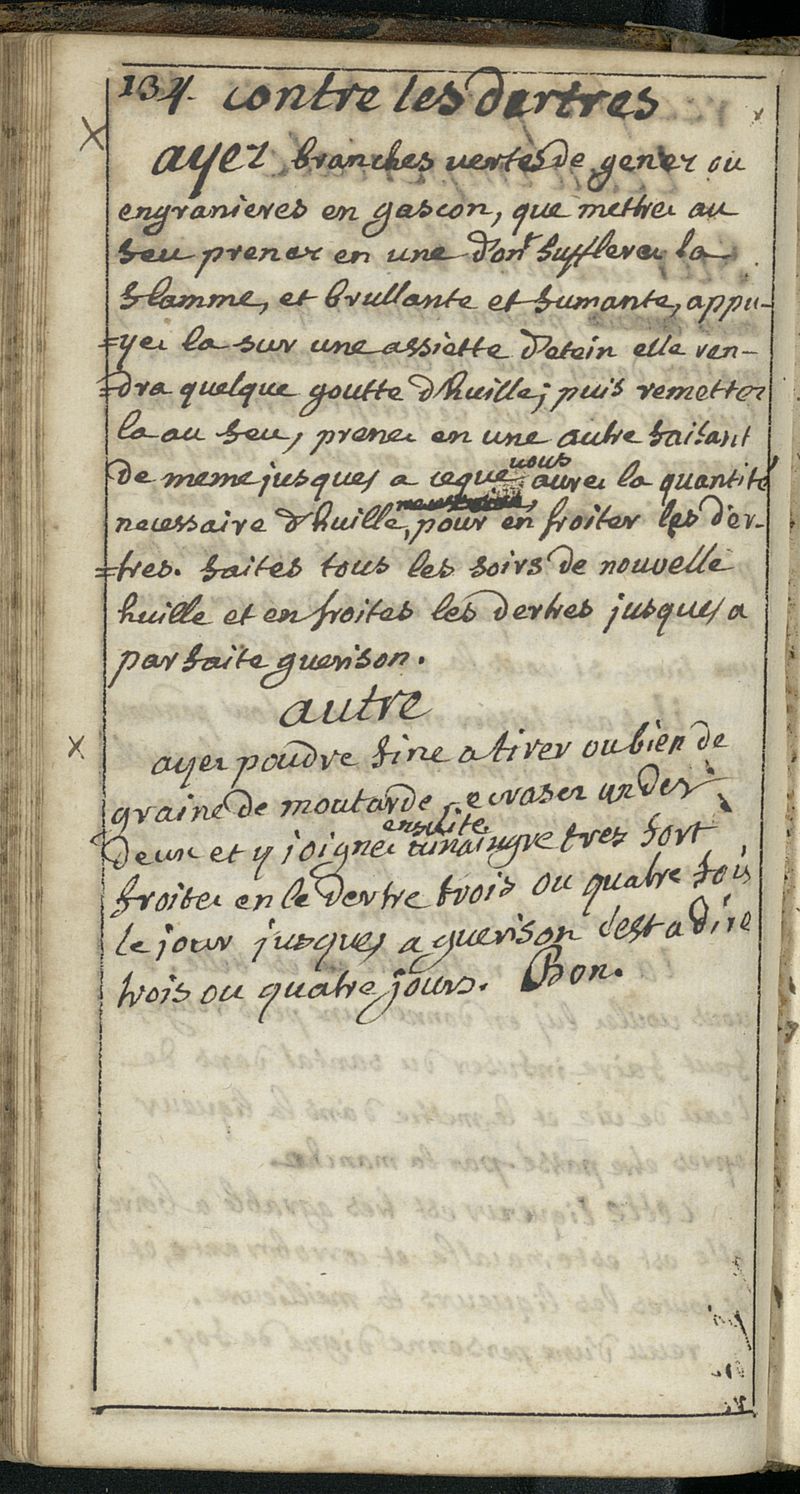 134. contre les dertres
ayez branches vertes de genez ou
engranieres en gascon, que mettrez au
feu prenez en une dont sufflerez la
flamme, et brullante et fumante, appu-
=yez la sur une assiette d'etein elle ren-
=dra quelque goutte d'huille; puis remettez
la au feu, prenez en une autre faisant
de meme jusques a ceque vous aurez la quantité
necessaire d'huille, pour en froiter les der-
=tres. faites tous les soirs de nouvelle
huille et en froites les dertres jusques a
parfaite guerison.
autre
ayez poudre fine a tirer ou bien de
graine de moutarde, ecrasez un des
deux et y joignez ensuite vinaingre tres fort
froitez en le dertre trois ou quatre fois
le jour jusques a guerison c'est a dire
trois ou quatre jours. Bon.